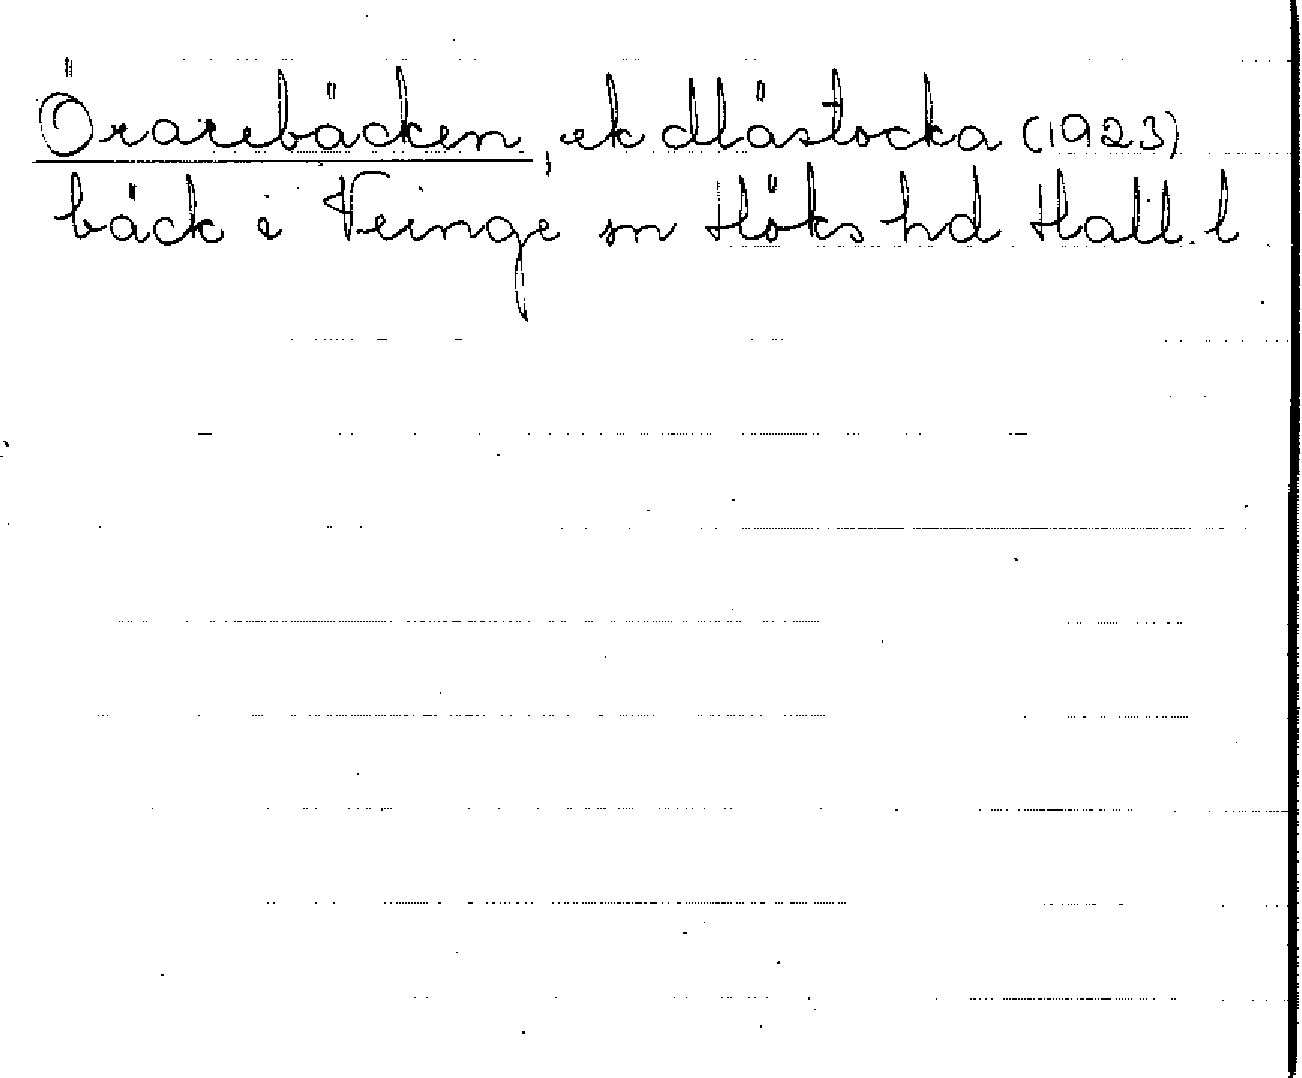 Örarebäcken, ek Mästocka (1923)
bäck i Veinge sn Höks hd Hall. l